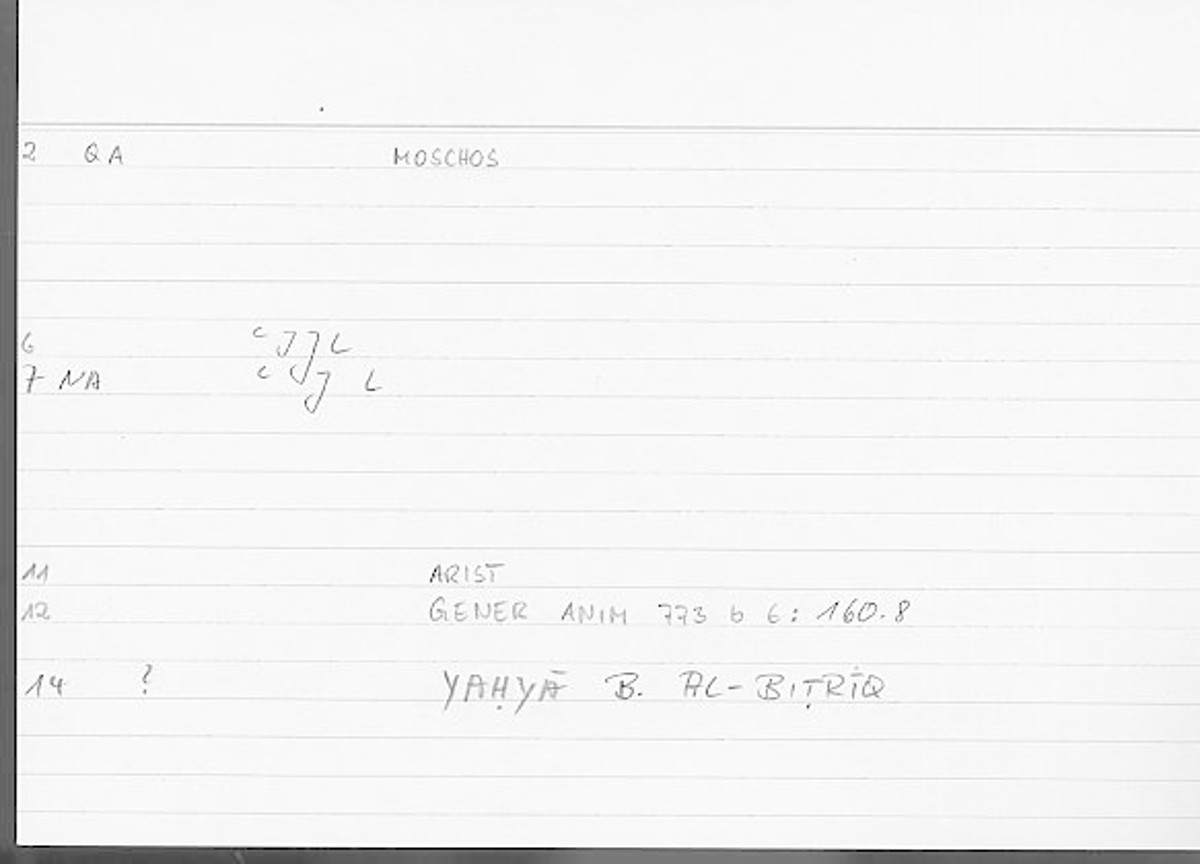 2 QA MOSCHOS
6
7 NA
11 ARIST
12 GENER ANIM 773 b 6: 160.8
14 ? YAḤYĀ B. AL-BIṬRĪQ